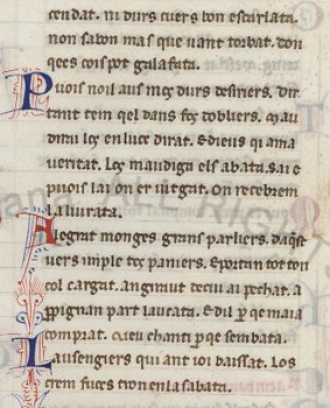 cendat. ni durs cuers bon escarlata.
non sabon mas que uant torbat. don
qees cors pot gula fata.
Puois noil aus mes durs desiriers. dir
tant tem qel dans fos dobliers. mau
drau los en luce dirat. E dieus qi ama
ueritat. Los maudiga els abata. sai e
puois lai on er iutgat. On recebrem
la liurata.
Alegrat monges grans parliers. daqest
uers imple tos paniers. E portan tot ton
col cargat. an giraut deciu ai pechat. a
ppignan part laucata. Edil p qe maia
comprat. cueu chant p qe sembata.
Lausengiers qui ant ioi baissat. Los
crem fuocs en la sabata.